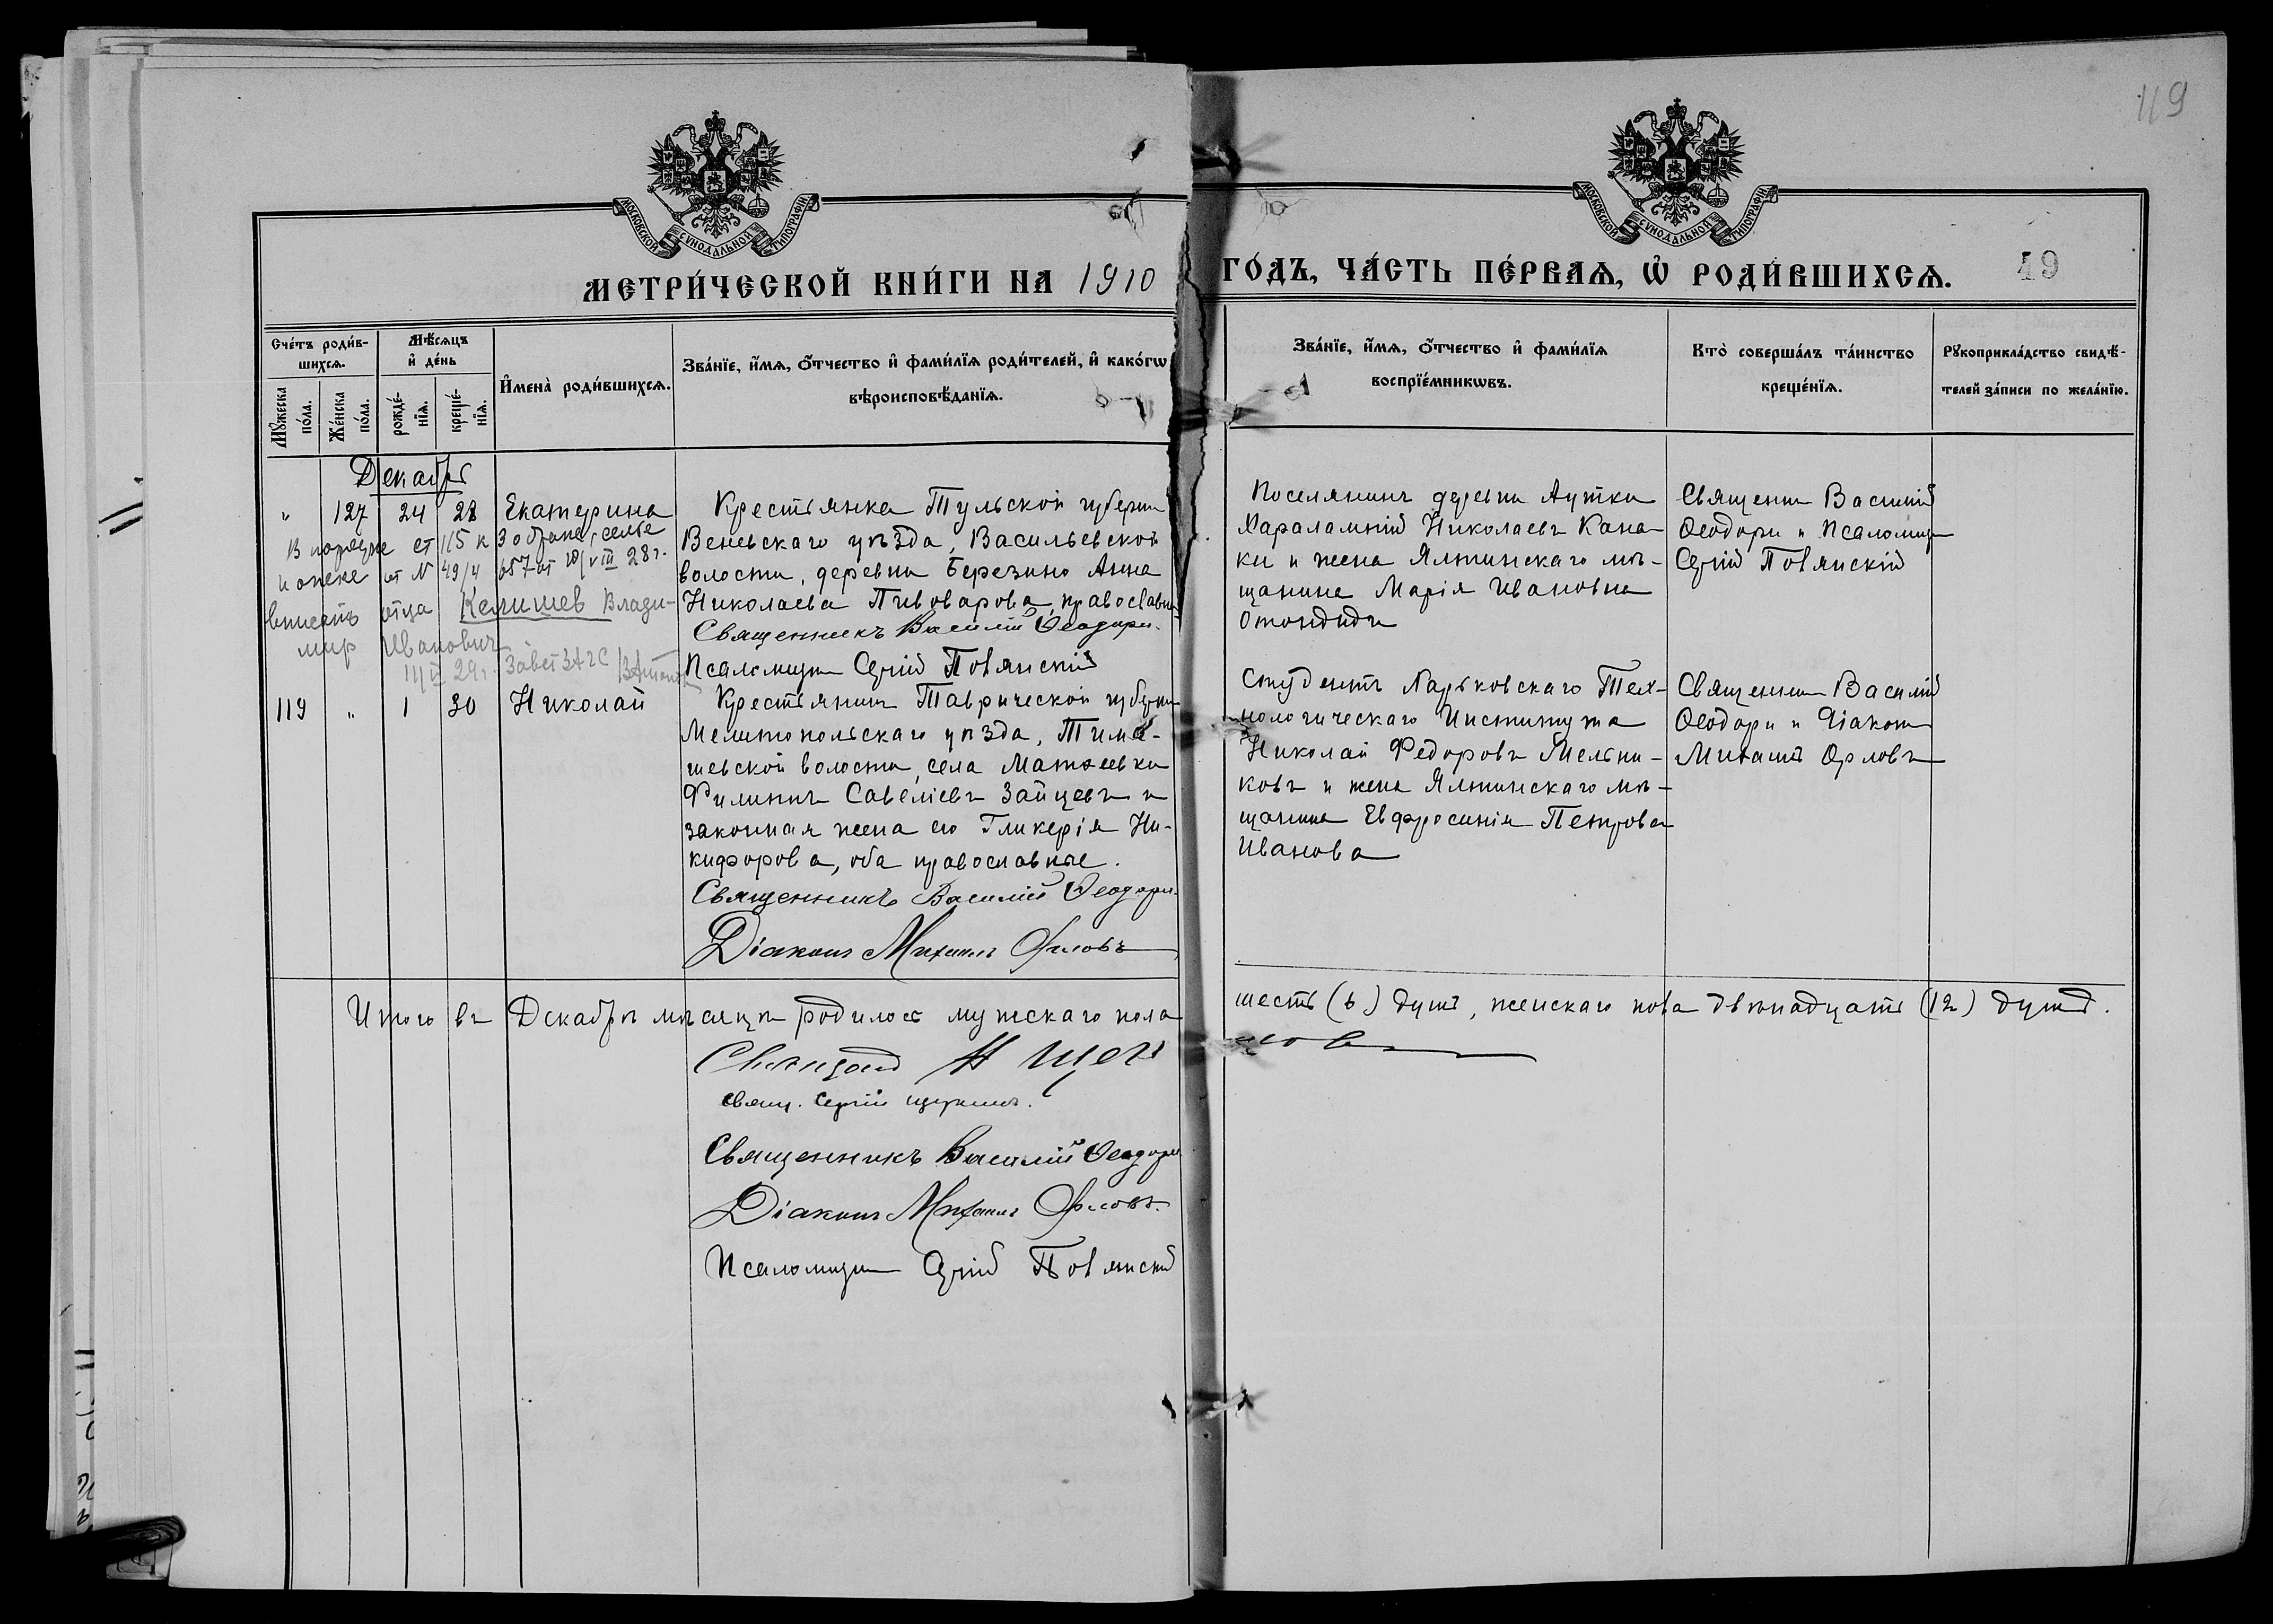 119
МОСКОВСКОЙ СѴНОДАЛЬНОЙ ТИПОГРАФІИ
МОСКОВСКОЙ СѴНОДАЛЬНОЙ ТИПОГРАФІИ
МЕТРИ́ЧЕСКОЙ КНИ́ГИ НА 1910
ГО́ДЪ, ЧА́СТЬ ПЕ́РВАѦ, Ѡ҆ РОДИ́ВШИХСѦ.
49
Сче́тъ роди́в-
шихсѧ.
Мꙋ́жеска
по́ла.
Же́нска
по́ла.
Мѣ́сѧцъ
и҆ де́нь
рожде́-
нїѧ.
креще́-
нїѧ.
И҆мена̀ роди́вшихсѧ.
Зва́нїе, и҆́мѧ, ѻ҆́тчество и҆ фами́лїѧ роди́телей, и҆ како́гѡ
вѣроисповѣ́данїѧ.
Зва́нїе, и҆́мѧ, ѻ҆́тчество и҆ фами́лїѧ
воспрїе́мникѡвъ.
Кто̀ соверша́лъ та́инство
креще́нїѧ.
Рꙋкоприкла́дство свидѣ́-
телей за́писи по жела́нїю.
Декабрь
" 127 24 28 Екатерина
В порядке ст 115 к З о браке, семье
и опеке от № 49/4 657 от 10/VIII 28 г.
вписать отца Келишев Влади-
мир Иванович
Крестьянка Тульской губерн
Веневскаго уѣзда, Васильевской
волости, деревни Березино Анна
Николаева Пивоварова, православн
Священникъ Василій Ѳеодори.
Псаломщик Сергій Повянскій
Поселянинъ деревни Аутки
Харалампій Николаевъ Кана-
ки и жена Ялтинскаго мѣ-
щанина Марія Ивановна
Священни Василій
Ѳеодори и Псаломщ
Сергій Повянскій
119 " 1 30 Николай
Крестьянинъ Таврической губерн
Мелитопольскаго уѣзда, Тима-
шевской волости, села Матвеевки
Филиппъ Савеліевъ Зайцевъ и
законная жена его Гликерія Ни-
кифорова, оба православные.
Священникъ Василій Ѳеодори.
Діаконъ Михаилъ Орловъ
Студентъ Харьковскаго Тех-
нологическаго Института
Николай Федоровъ Мельни-
ковъ и жена Ялтинскаго мѣ-
щанина Евфросинія Петрова
Иванова
Священни Василій
Ѳеодори и Діакон
Михаилъ Орловъ
Итого въ Декабрѣ мѣсяцѣ родилось мужскаго пола
шесть (6) душъ, женскаго пола двѣнадцать (12) душъ.
Свящ. Сергій Щукинъ.
Священникъ Василій Ѳеодори
Діаконъ Михаилъ Орловъ.
Псаломщик Сергій Повянскій